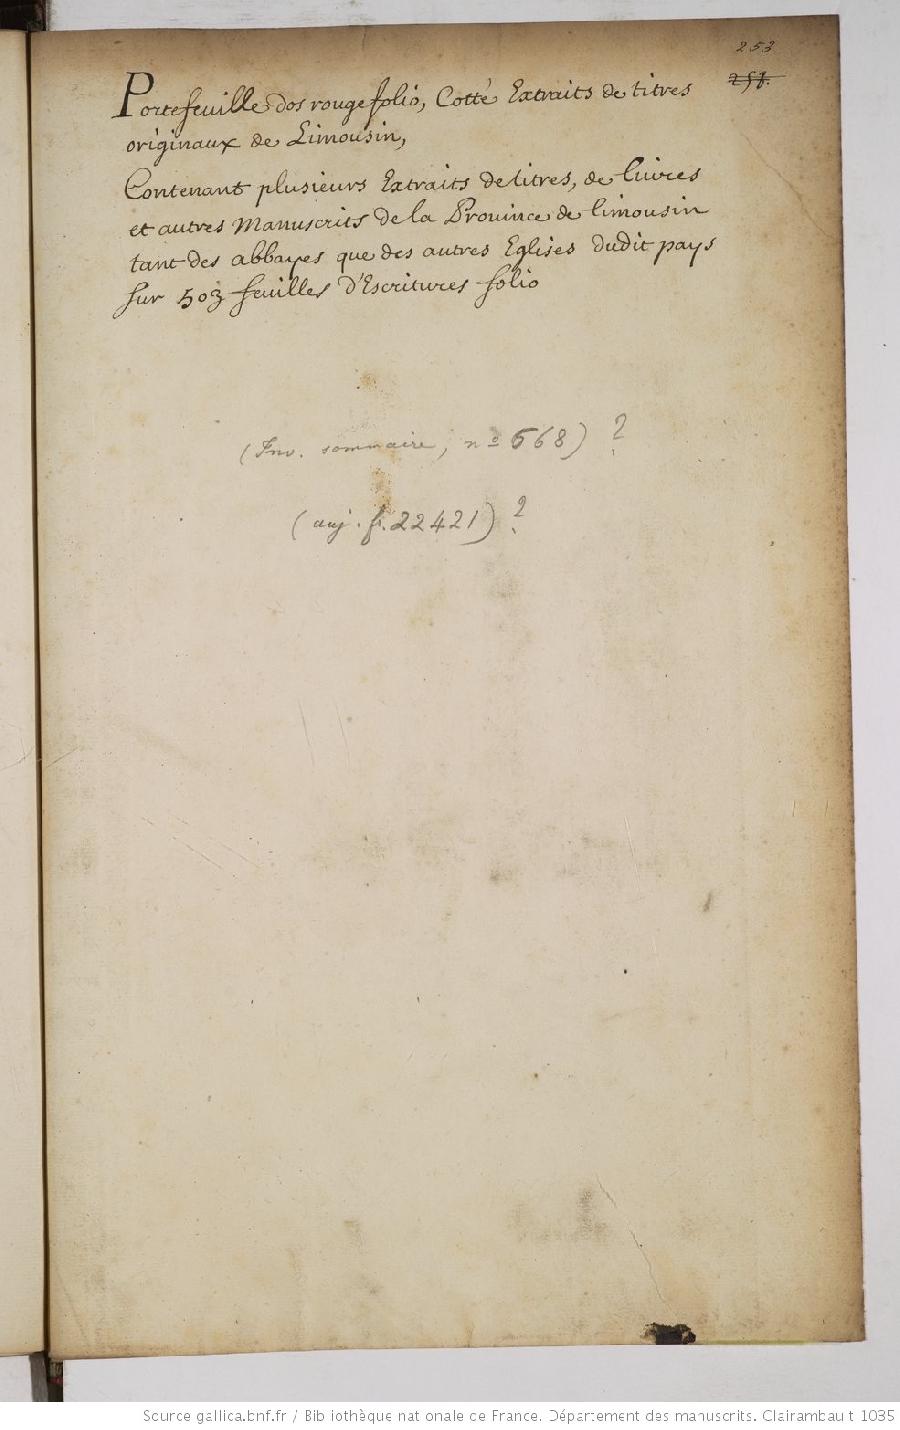 253
257.
Portefeuille dos rouge folio, Cotté Extraits de titres
originaux de Limousin,
Contenant plusieurs Extraits de titres, de liures
et autres Manuscrits de la Prouince de limousin
tant des abbayes que des autres Eglises dudit pays
sur 503 feuilles d'Escritures folio
(Inv. sommaire, nº 668) ?
(auj. f. 22421) ?
Source gallica.bnf.fr / Bibliothèque nationale de France. Département des manuscrits. Clairambault 1035